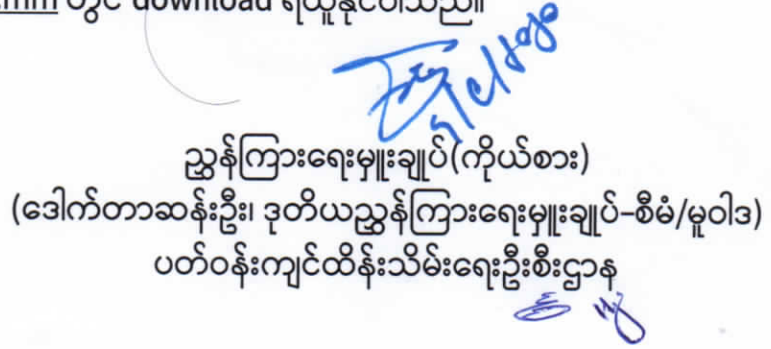 တွင် download ရယူနိုင်ပါသည်။
ညွှန်ကြားရေးမှူးချုပ်(ကိုယ်စား)
(ဒေါက်တာဆန်းဦး၊ ဒုတိယညွှန်ကြားရေးမှူးချုပ်-စီမံ/မူဝါဒ)
ပတ်ဝန်းကျင်ထိန်းသိမ်းရေးဦးစီးဌာန